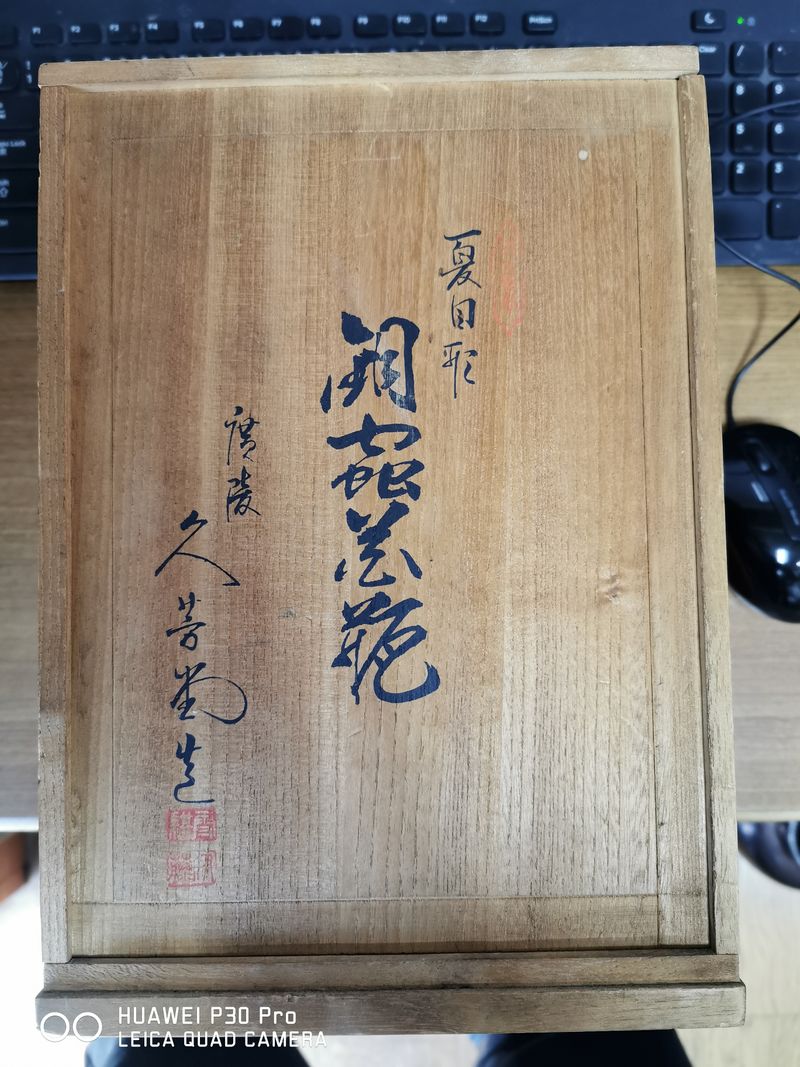 夏目形
銅蟲花瓶
廣陵
久芳堂造
HUAWEI P30 Pro
LEICA QUAD CAMERA